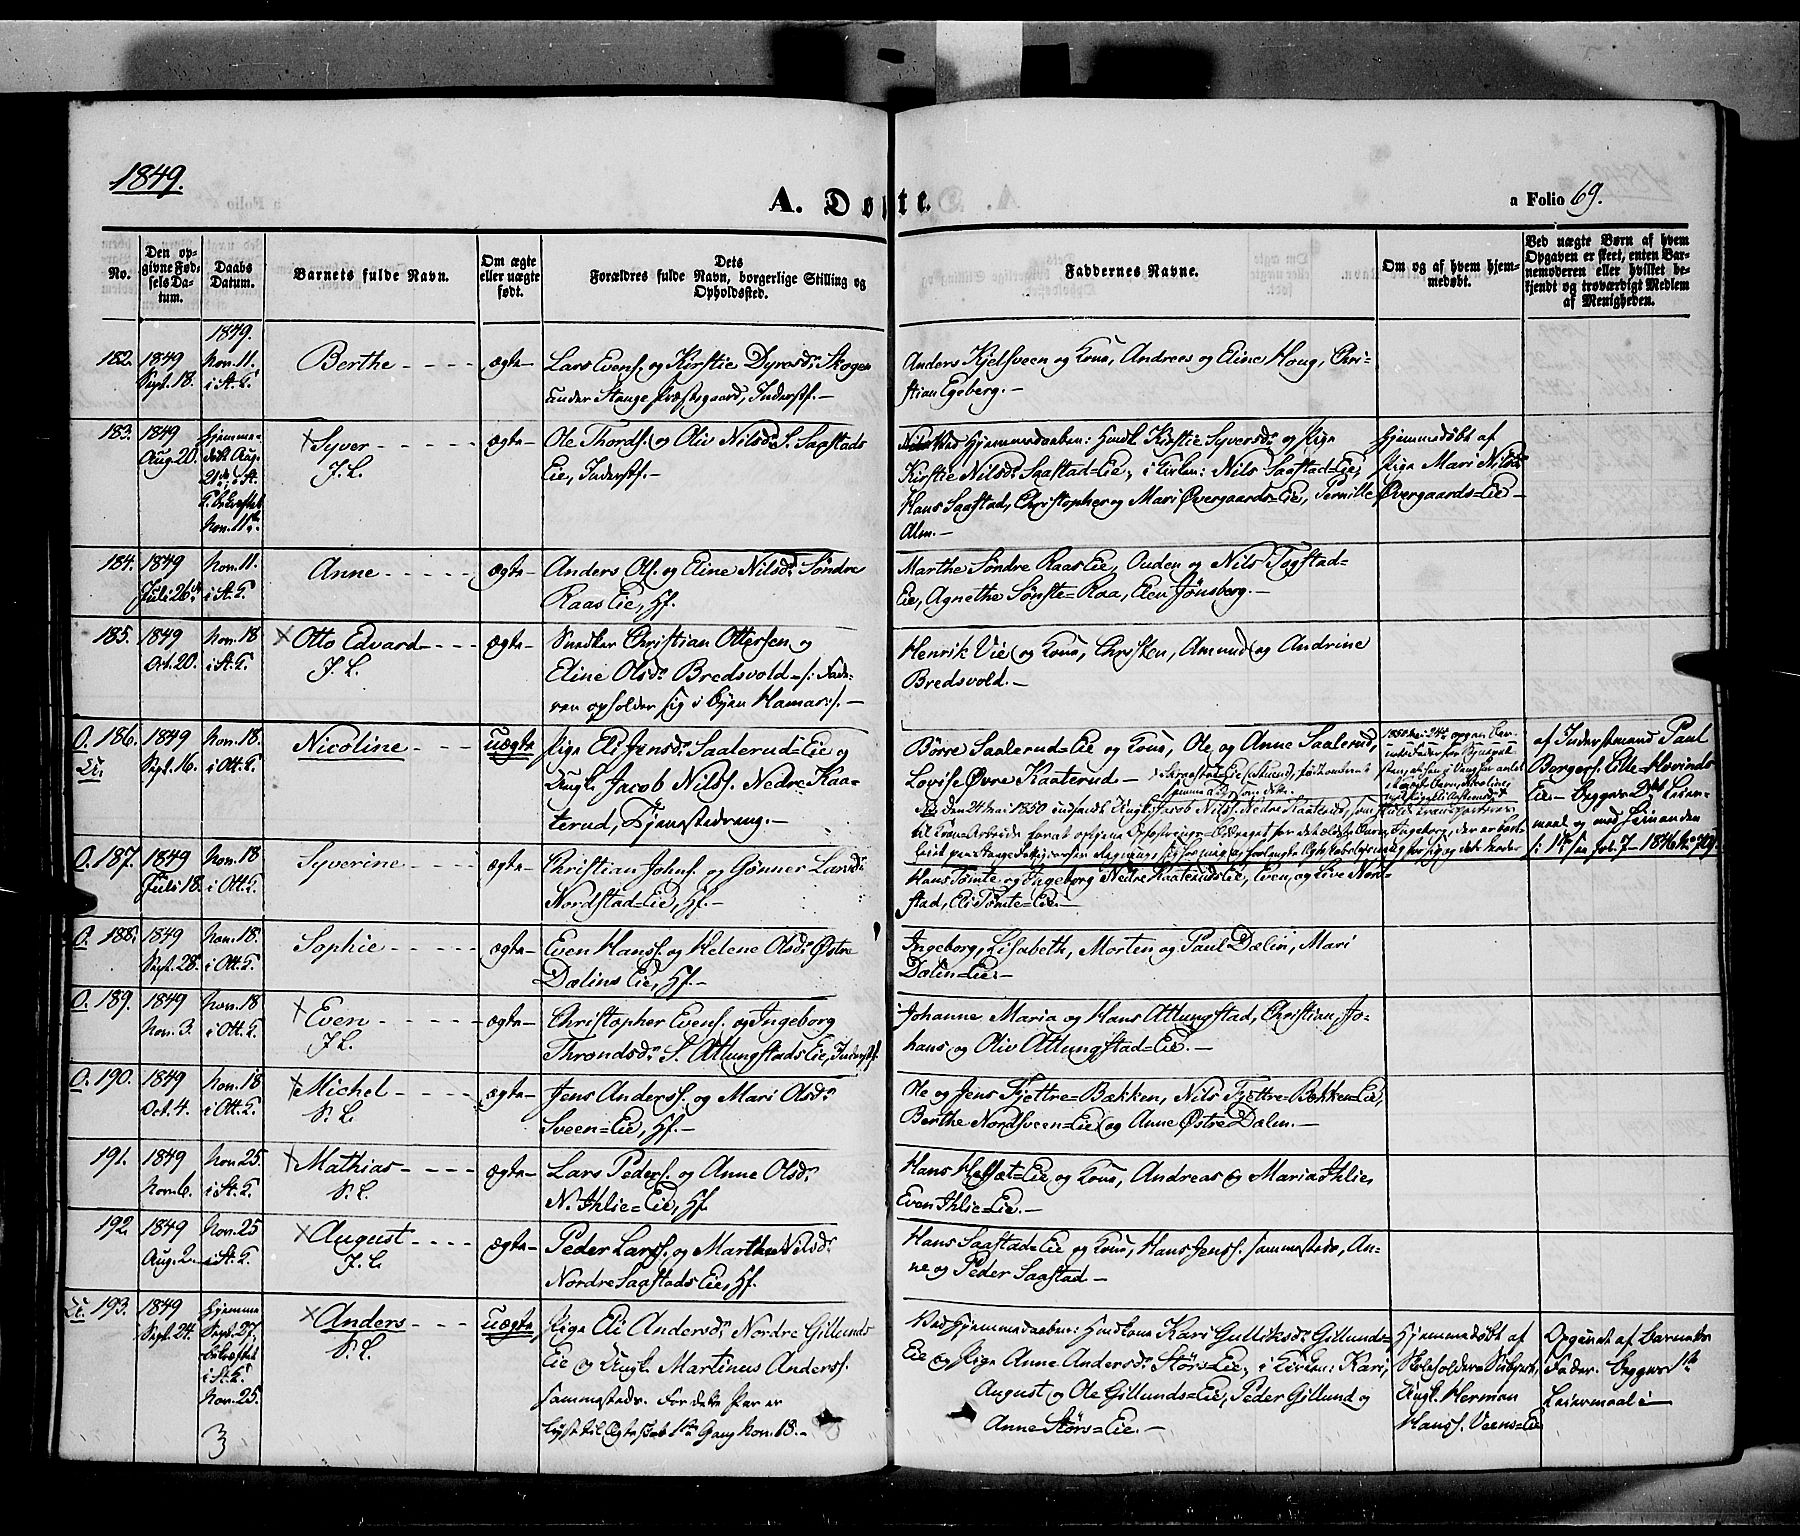 1849.
A. Døpte.
a Folio 69.
No.
Den op-
givne Fød-
sels Da-
tum.
Daabs
Datum.
Barnets fulde Navn.
Om ægte
eller uægte
født.
Dets
Forældres fulde Navn, borgerlige Stilling og
Opholdssted.
Faddernes Navne.
Om og af hvem hjem-
medøbt.
Ved uægte Børn af hvem
Opgaven er skeet, enten Bar-
nemoderen eller hvilket be-
kjendt og troværdigt Medlem
af Menigheden.
1849.
182. 1849 Sept. 18.
Nov. 11. i St. K.
Berthe
ægte
Lars Evens. og Kirstie Dyresd. Skogen
under Stange Præstegaard, Inderstf.
Anders Kjelsveen og Kone, Andreas og Eline Houg, Chri-
stian Egeberg.
183. 1849 Aug. 20.
Hjemme-
døbt Aug.
21de, i St.
K. bekræftet
Nov. 11te.
Syver
ægte
Ole Thords. og Oliv Nilsd. S. Saastads
Eie, Inderstf.
Ved Hjemmedaaben: Huusk. Kirstie Syversd. og Pige
Kirstie Nilsd. Saastad=Eie; i Kirken: Nils Saastad=Eie,
Hans Saastad, Christopher og Mari Øvergaards=Eie, Pernille
Alm.
Hjemmedøbt af
Pige Mari Nilsd.
Øvergaards=Eie
184. 1849 Juli 26.
Nov. 11. i St. K.
Anne
ægte
Anders Ols. og Eline Nilsd. Søndre
Raas Eie, Hf.
Marthe Søndre Raas Eie, Auden og Nils Togstad=
Eie, Agnethe Sønste=Raa, Even Jønsberg.
185. 1849 Oct. 20.
Nov. 18 i St. K.
Otto Edvard
ægte
Snedker Christian Ottersen og
Eline Olsd. Bredsvold /: Fade-
ren opholder sig i Byen Hamar :/.
Henrik Vie og Kone, Christen, Amund og Andrine
Bredsvold.
O. 186. 1849 Sept. 16.
Nov. 18. i Ott. K.
Nicoline
uægte
Pige Eli Jensd. Saalerud=Eie og
Ungk. Jacob Nils. Nedre Kaa-
terud, Tjenestedreng.
Børre Saalerud=Eie og Kone, Ole og Anne Saalerud,
Lovise Øvre Kaaterud
af Inderstmand Paul
Borgers. Lille=Hovinds
Eie. Begges 2det Leier-
maal
O. 187. 1849 Juli 18.
Nov. 18 i Ott. K.
Syverine
ægte
Christian Johns. og Gønner Larsd.
Nordstad=Eie, Hf.
Hans Tomte og Ingeborg Nedre Kaaterud Eie, Even og Live Nord-
stad, Eli Tomte=Eie.
O. 188. 1849 Sept. 28.
Nov. 18. i Ott. K.
Sophie
ægte
Even Hans. og Helene Olsd. Østre
Dælins Eie, Hf.
Ingeborg, Lisabeth, Morten og Paul Dælin, Mari
Dælin=Eie.
O. 189. 1849 Nov. 3.
Nov. 18 i Ott. K.
Even
ægte
Christopher Evens. og Ingeborg
Throndsd. S. Atlungstads Eie, Inderstf.
Johanne Maria og Hans Atlungstad, Christian, Jo-
hans og Oliv Atlungstad=Eie.
O. 190. 1849 Oct. 4.
Nov. 18 i Ott. K.
Michel
ægte
Jens Anders. og Mari Olsd.
Sveen=Eie, Hf.
Ole og Jens Tjettre=Bækken, Nils Tjettre=Bækken=Eie,
Berthe Nordsveen=Eie og Anne Østre Dælin.
191. 1849 Nov. 6.
Nov. 25. i St. K.
Mathias
ægte
Lars Peders. og Anne Olsd.
N. Ihlie=Eie, Hf.
Hans Hassæt=Eie og Kone, Andreas og Maria Ihlie,
Even Ihlie=Eie.
192. 1849 Aug. 2.
Nov. 25 i St. K.
August
ægte
Peder Lars. og Marthe Nilsd.
Nordre Saastads Eie, Hf.
Hans Saastad=Eie og Kone, Hans Jens. sammesteds, An-
ne og Peder Saastad.
193. 1849 Sept. 24.
Hjemme
Sept. 27,
bekræftet
i St. K.
Nov. 25.
Anders
uægte
Pige Eli Andersd. Nordre Gillunds
Eie og Ungk. Martinus Anders.
sammesteds. For dette Par er
lyst til Ægteskab 1ste Gang Nov. 18.
Ved Hjemmedaaben: Huuskone Kari Gulliksd. Gillunds=
Eie og Pige Anne Andersd. Störs=Eie; i Kirken: Kari,
August og Ole Gillunds=Eie, Peder Gillund og
Anne Störs=Eie.
Hjemmedøbt af
Skoleholder
Ungk. Herman
Hans. Veens=Eie
Opgivet af Barnets
Fader. Begges 1ste
Leiermaal
3